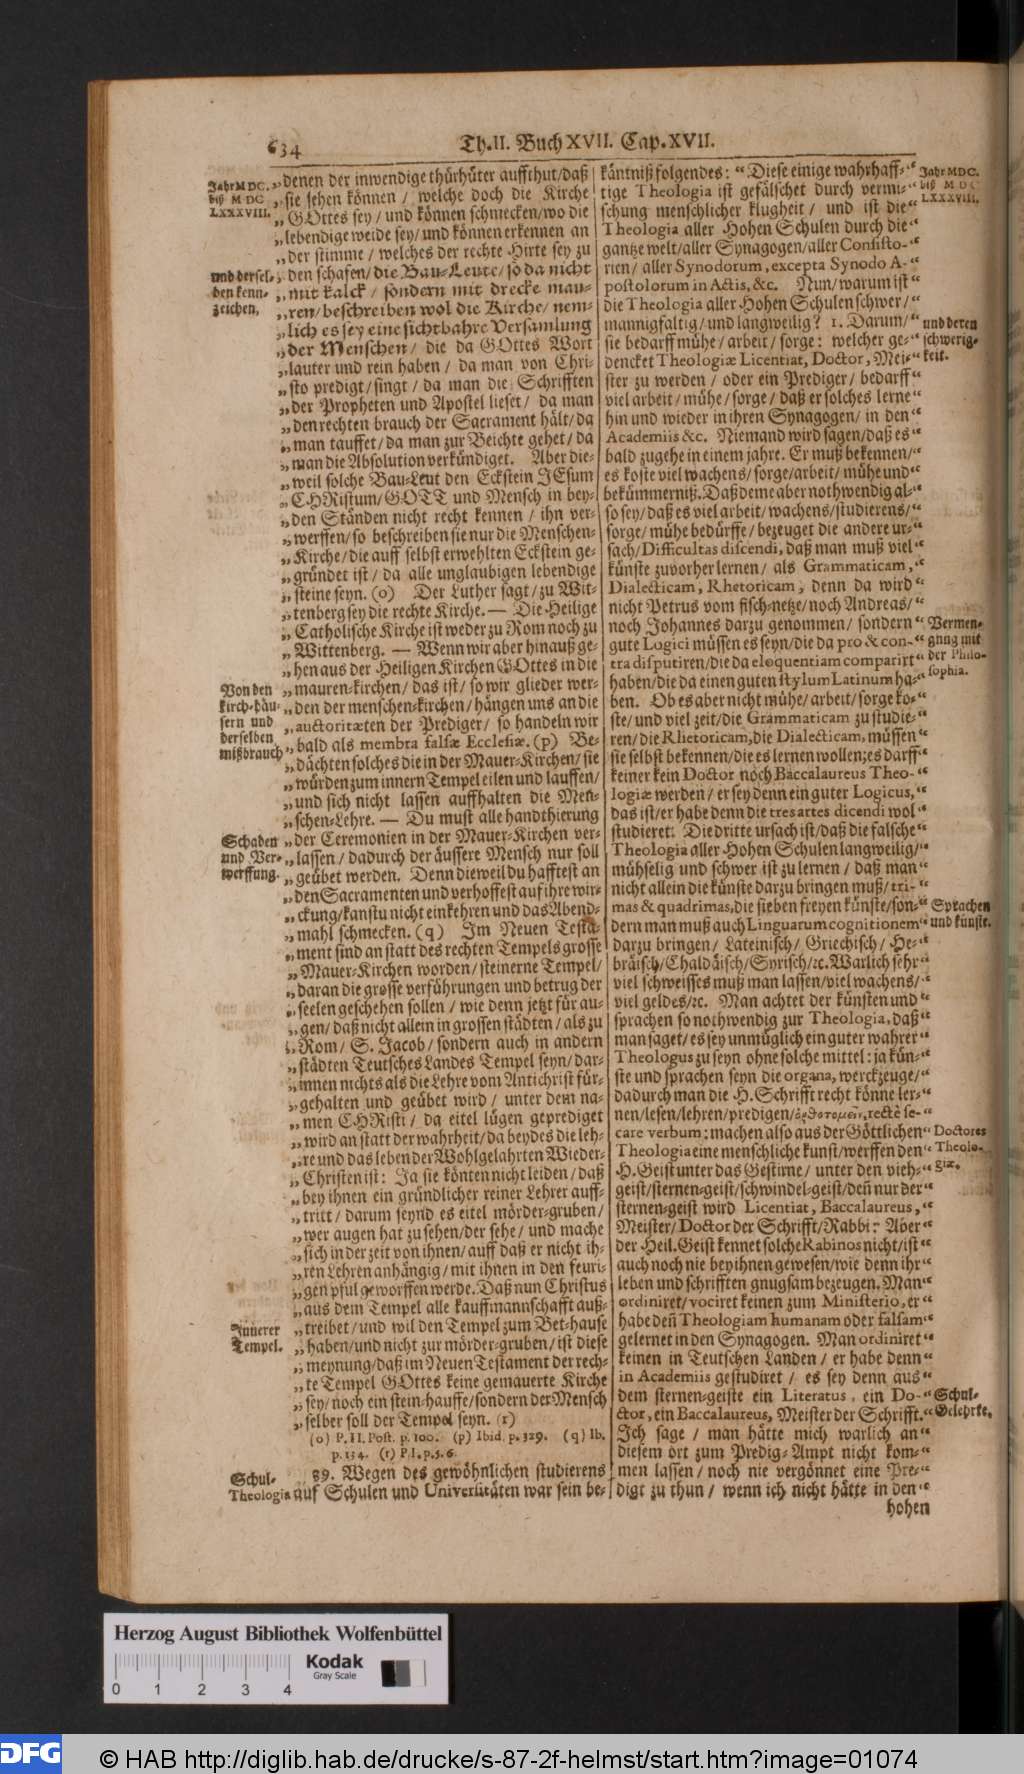 634
Th.II. Buch XVII. Cap. XVII.
Jahr MDC.
biß M DC
LXXXVIII.
„denen der inwendige thürhüter auffthut/daß
„sie sehen können / welche doch die Kirche
„GOttes sey/ und können schmecken/wo die
„lebendige weide sey/und können erkennen an
„der stimme / welches der rechte Hirte sey zu
und dersel-
ben kenn-
zeichen.
„den schafen/ die Bau-Leute/ so da nicht
„mit kalck / sondern mit drecke mau-
„ren/ beschreiben wol die Kirche/ nem-
„lich es sey eine sichtbahre Versamlung
„der Menschen/ die da GOttes Wort
„lauter und rein haben/ da man von Chri-
„sto predigt/ singt/ da man die Schrifften
„der Propheten und Apostel lieset/ da man
„den rechten brauch der Sacrament hält/ da
„man tauffet/ da man zur Beichte gehet/ da
„man die Absolution verkündiget. Aber die-
„weil solche Bau-Leut den Eckstein JEsum
„CHRistum/ GOTT und Mensch in bey-
„den Ständen nicht recht kennen / ihn ver-
„werffen/ so beschreiben sie nur die Menschen-
„Kirche/ die auff selbst erwehlten Eckstein ge-
„gründet ist/ da alle unglaubigen lebendige
„steine seyn. (o) Der Luther sagt/ zu Wit-
„tenberg sey die rechte Kirche. — Die Heilige
„Catholische Kirche ist weder zu Rom noch zu
„Wittenberg. — Wenn wir aber hinauß ge-
„hen aus der Heiligen Kirchen GOttes in die
Von den
kirch-häu-
sern und
derselben
mißbrauch
„mauren-kirchen/ das ist/ so wir glieder wer-
„den der menschen-kirchen/ hängen uns an die
„auctoritæten der Prediger/ so handeln wir
„bald als membra falsæ Ecclesiæ. (p) Be-
„dächten solches die in der Mauer-Kirchen/ sie
„würden zum innern Tempel eilen und lauffen/
„und sich nicht lassen auffhalten die Men-
„schen-Lehre. — Du must alle handthierung
Schaden
und Ver-
werffung.
„der Ceremonien in der Mauer-Kirchen ver-
„lassen/ dadurch der äussere Mensch nur soll
„geübet werden. Denn dieweil du hafftest an
„den Sacramenten und verhoffest auf ihre wir-
„ckung/kanstu nicht einkehren und das Abend-
„mahl schmecken. (q) Im Neuen Testa-
„ment sind an statt des rechten Tempels grosse
„Mauer-Kirchen worden/ steinerne Tempel/
„daran die grosse verführungen und betrug der
„seelen geschehen sollen / wie denn jetzt für au-
„gen/ daß nicht allein in grossen städten/ als zu
„Rom/ S. Jacob/ sondern auch in andern
„städten Teutsches Landes Tempel seyn/ dar-
„innen nichts als die Lehre vom Antichrist für-
„gehalten und geübet wird / unter dem na-
„men CHRisti/ da eitel lügen geprediget
„wird an statt der wahrheit/ da beydes die leh-
„re und das leben der Wohlgelahrten Wieder-
„Christen ist: Ja sie könten nicht leiden/ daß
„bey ihnen ein gründlicher reiner Lehrer auff-
„tritt/ darum seynd es eitel mörder-gruben/
„wer augen hat zu sehen/der sehe/ und mache
„sich in der zeit von ihnen/ auff daß er nicht ih-
„ren Lehren anhängig/ mit ihnen in den feuri-
„gen pful geworffen werde. Daß nun Christus
„aus dem Tempel alle kauffmannschafft auß-
Innerer
Tempel.
„treibet/ und wil den Tempel zum Bet-hause
„haben/und nicht zur mörder-gruben/ ist diese
„meynung/daß im Neuen Testament der rech-
„te Tempel GOttes keine gemauerte Kirche
„sey/ noch ein stein-hauffe/ sondern der Mensch
„selber soll der Tempel seyn. (r)
(o) P. II. Post. p. 100. (p) Ibid. p. 329. (q) Ib.
p. 134. (r) P. I. p. 5. 6.
Schul-
Theologia
89. Wegen des gewöhnlichen studierens
auf Schulen und Universitäten war sein be-
käntniß folgendes: “Diese einige wahrhaff-“
tige Theologia ist gefälschet durch vermi-“
schung menschlicher klugheit / und ist die“
Theologia aller Hohen Schulen durch die“
gantze welt/ aller Synagogen/ aller Consisto-“
rien/ aller Synodorum, excepta Synodo A-“
postolorum in Actis, &c. Nun/ warum ist“
die Theologia aller Hohen Schulen schwer/“
mannigfaltig/ und langweilig? 1. Darum/“
sie bedarff mühe/ arbeit/ sorge: welcher ge-“
dencket Theologiæ Licentiat, Doctor, Mei-“
ster zu werden / oder ein Prediger/ bedarff“
viel arbeit/ mühe/ sorge/ daß er solches lerne“
hin und wieder in ihren Synagogen/ in den“
Academiis &c. Niemand wird sagen/ daß es“
bald zugehe in einem jahre. Er muß bekennen/“
es koste viel wachens/ sorge/arbeit/ mühe und“
bekümmerniß. Daß deme aber nothwendig al-“
so sey/ daß es viel arbeit/ wachens/studierens/“
sorge/ mühe bedürffe/ bezeuget die andere ur-“
sach/ Difficultas discendi, daß man muß viel“
künste zuvorher lernen/ als Grammaticam,“
Dialecticam, Rhetoricam, denn da wird“
nicht Petrus vom fisch-netze/ noch Andreas/“
noch Johannes darzu genommen/ sondern“
gute Logici müssen es seyn/ die da pro & con-“
tra disputiren/ die da eloquentiam comparirt“
haben/die da einen guten stylum Latinum ha-“
ben. Ob es aber nicht mühe/ arbeit/ sorge ko-“
ste/ und viel zeit/ die Grammaticam zu studie-“
ren/ die Rhetoricam, die Dialecticam, müssen“
sie selbst bekennen/ die es lernen wollen; es darff“
keiner kein Doctor noch Baccalaureus Theo-“
logiæ werden/ er sey denn ein guter Logicus,“
das ist/ er habe denn die tres artes dicendi wol“
studieret. Die dritte ursach ist/daß die falsche“
Theologia aller Hohen Schulen langweilig/“
mühselig und schwer ist zu lernen/ daß man“
nicht allein die künste darzu bringen muß/ tri-“
mas & quadrimas, die sieben freyen künste/ son-“
dern man muß auch Linguarum cognitionem“
darzu bringen/ Lateinisch/ Griechisch/ He-“
bräisch/ Chaldäisch/ Syrisch/ ꝛc. Warlich sehr“
viel schweisses muß man lassen/ viel wachens/“
viel geldes/ ꝛc. Man achtet der künsten und“
sprachen so nothwendig zur Theologia, daß“
man saget/ es sey unmüglich ein guter wahrer“
Theologus zu seyn ohne solche mittel: ja kün-“
ste und sprachen seyn die organa, werckzeuge/“
dadurch man die H. Schrifft recht könne ler-“
nen/ lesen/ lehren/ predigen/ ὀρθοτομεῖν, rectè se-“
care verbum: machen also aus der Göttlichen“
Theologia eine menschliche kunst/ werffen den“
H. Geist unter das Gestirne/ unter den vieh-“
geist/ sternen-geist/ schwindel-geist/ deñ nur der“
sternen-geist wird Licentiat, Baccalaureus,“
Meister/ Doctor der Schrifft/ Rabbi: Aber“
der Heil. Geist kennet solche Rabinos nicht/ ist“
auch noch nie bey ihnen gewesen/ wie denn ihr“
leben und schrifften gnugsam bezeugen. Man“
ordiniret/ vociret keinen zum Ministerio, er“
habe deñ Theologiam humanam oder falsam“
gelernet in den Synagogen. Man ordiniret“
keinen in Teutschen Landen/ er habe denn“
in Academiis gestudiret / es sey denn aus“
dem sternen-geiste ein Literatus, ein Do-“
ctor, ein Baccalaureus, Meister der Schrifft.“
Ich sage / man hätte mich warlich an“
diesem ort zum Predig-Ampt nicht kom-“
men lassen/ noch nie vergönnet eine Pre-“
digt zu thun/ wenn ich nicht hätte in den“
hohen
Jahr MDC.
biß M DC
LXXXVIII.
und deren
schwerig-
keit.
Vermen-
gung mit
der Philo-
sophia.
Sprachen
und künste.
Doctores
Theolo-
giæ.
Schul-
Gelehrte.
Herzog August Bibliothek Wolfenbüttel
Kodak
Gray Scale
0 1 2 3 4
DFG
© HAB http://diglib.hab.de/drucke/s-87-2f-helmst/start.htm?image=01074